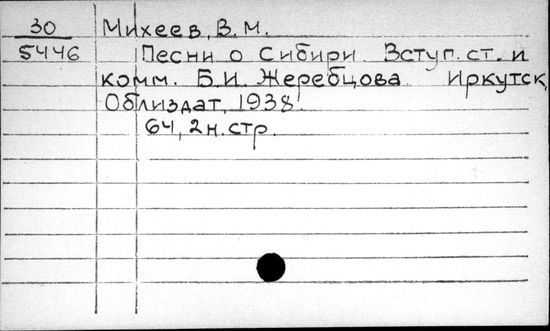 30 Михеев, В.М.
5446 Песни о Сибири. Вступ. ст. и
комм. Б.И. Жеребцова. Иркутск,
Облиздат, 1938.
64, 2 н. стр.